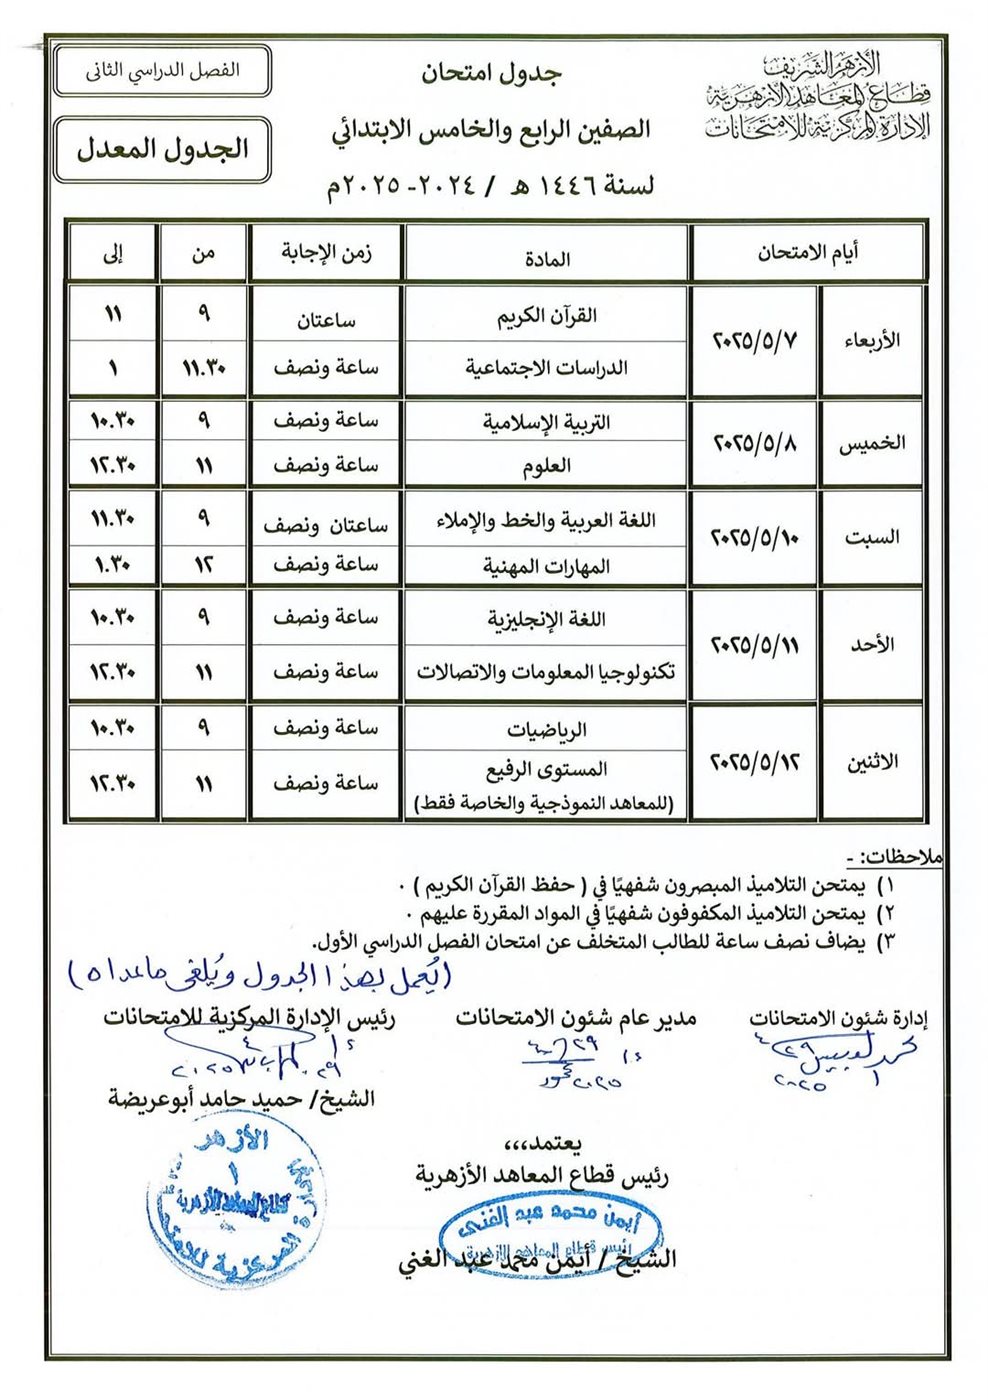 الأزهر الشريف
قطاع المعاهد الأزهرية
الإدارة المركزية للامتحانات
جدول امتحان
الصفين الرابع والخامس الابتدائي
لسنة ١٤٤٦ هـ / ٢٠٢٤-٢٠٢٥م
الفصل الدراسي الثانى
الجدول المعدل
أيام الامتحان المادة زمن الإجابة من إلى
الأربعاء ٢٠٢٥/٥/٧ القرآن الكريم ساعتان ٩ ١١
الدراسات الاجتماعية ساعة ونصف ١١.٣٠ ١
الخميس ٢٠٢٥/٥/٨ التربية الإسلامية ساعة ونصف ٩ ١٠.٣٠
العلوم ساعة ونصف ١١ ١٢.٣٠
السبت ٢٠٢٥/٥/١٠ اللغة العربية والخط والإملاء ساعتان ونصف ٩ ١١.٣٠
المهارات المهنية ساعة ونصف ١٢ ١.٣٠
الأحد ٢٠٢٥/٥/١١ اللغة الإنجليزية ساعة ونصف ٩ ١٠.٣٠
تكنولوجيا المعلومات والاتصالات ساعة ونصف ١١ ١٢.٣٠
الاثنين ٢٠٢٥/٥/١٢ الرياضيات ساعة ونصف ٩ ١٠.٣٠
المستوى الرفيع ساعة ونصف ١١ ١٢.٣٠
(للمعاهد النموذجية والخاصة فقط)
ملاحظات: -
١) يمتحن التلاميذ المبصرون شفهيًا في ( حفظ القرآن الكريم ) ٠
٢) يمتحن التلاميذ المكفوفون شفهيًا في المواد المقررة عليهم ٠
٣) يضاف نصف ساعة للطالب المتخلف عن امتحان الفصل الدراسي الأول.
(يُعمل بهذا الجدول ويُلغى ماعداه)
إدارة شئون الامتحانات مدير عام شئون الامتحانات رئيس الإدارة المركزية للامتحانات
الشيخ/ حميد حامد أبوعريضة
يعتمد،،،
رئيس قطاع المعاهد الأزهرية
أيمن محمد عبد الغنى
رئيس قطاع المعاهد الأزهرية
الشيخ / أيمن محمد عبد الغني
الأزهر
قطاع المعاهد الأزهرية
المركزية للامتحانات